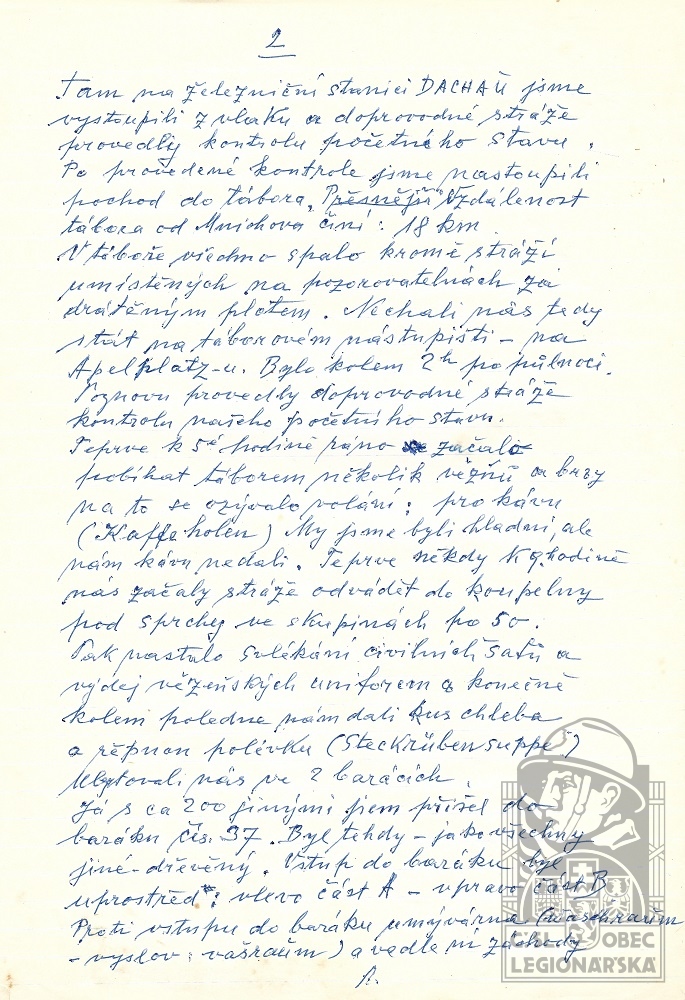 2
Tam na železniční stanici DACHAU jsme
vystoupili z vlaku a doprovodné stráže
provedly kontrolu početného stavu.
Po provedené kontrole jsme nastoupili
pochod do tábora. Přesnější Vzdálenost
tábora od Mnichova činí: 18 km.
V táboře všechno spalo kromě stráží
umístěných na pozorovatelnách za
drátěným plotem. Nechali nás tedy
stát na táborovém nástupišti - na
Apelplatz-u. Bylo kolem 2h po půlnoci.
Poznovu provedly doprovodné stráže
kontrolu našeho početního stavu.
Teprve k 5é hodině ráno začalo
pobíhat táborem několik vězňů a brzy
na to se ozývalo volání: pro kávu
(Kaffe holen) My jsme byli hladní, ale
nám kávu nedali. Teprve někdy k 9. hodině
nás začaly stráže odvádět do koupelny
pod sprchy ve skupinách po 50.
Pak nastalo svlékání civilních šatů a
výdej vězeňských uniforem a konečně
kolem poledne nám dali kus chleba
a řepnou polévku (Steckrübensuppe)
Ubytovali nás ve 2 barácích.
Já s ca 200 jinými jsem přišel do
baráku čís. 37. Byl tehdy - jako všechny
jiné - dřevěný. Vstup do baráku byl
uprostřed: vlevo část A - vpravo část B
Proti vstupu do baráku umývárna (waschraum
- vyslov: vašraum) a vedle ní záchody
ČSL. OBEC
LEGIONÁŘSKÁ